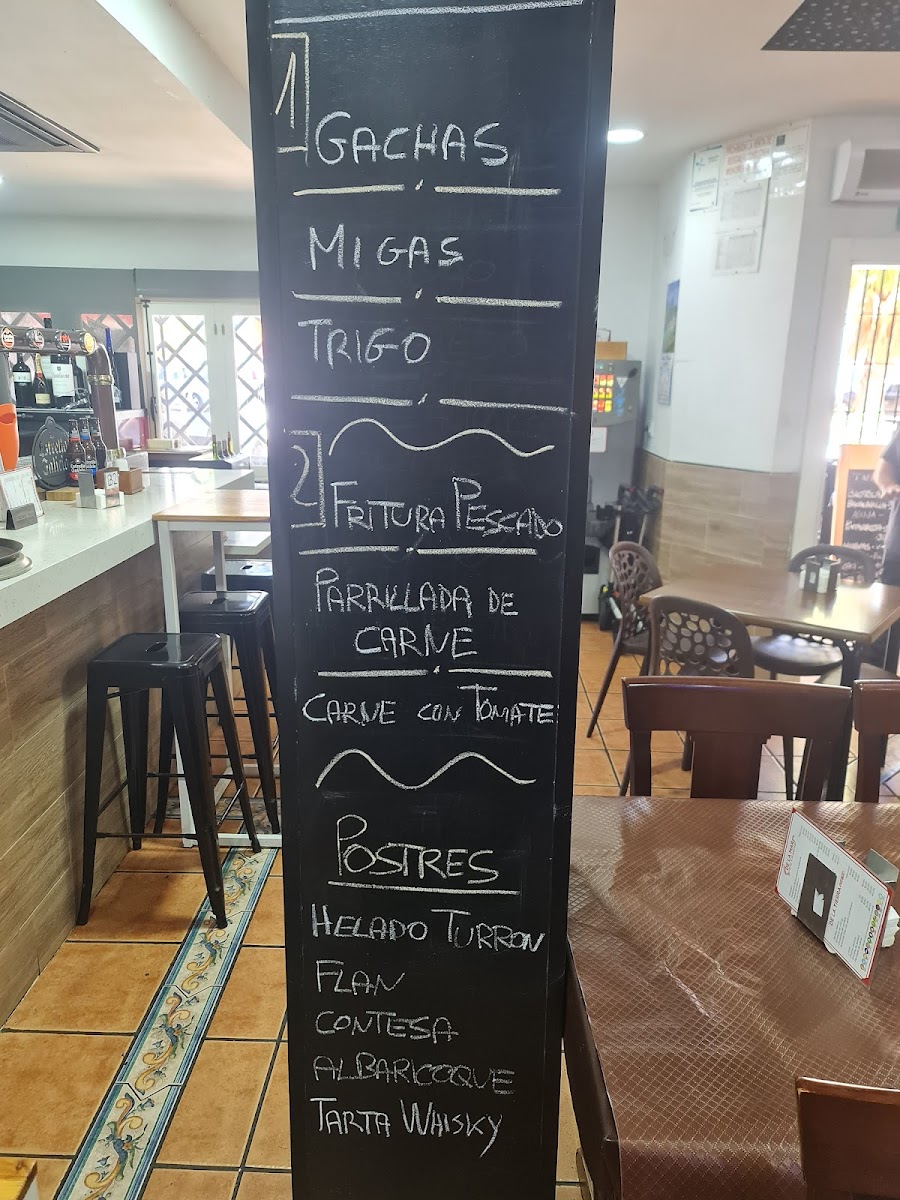 1
GACHAS
MIGAS
TRIGO
2
FRITURA PESCADO
PARRILLADA DE
CARNE
CARNE CON TOMATE
POSTRES
HELADO TURRON
FLAN
CONTESA
ALBARICOQUE
TARTA WHISKY